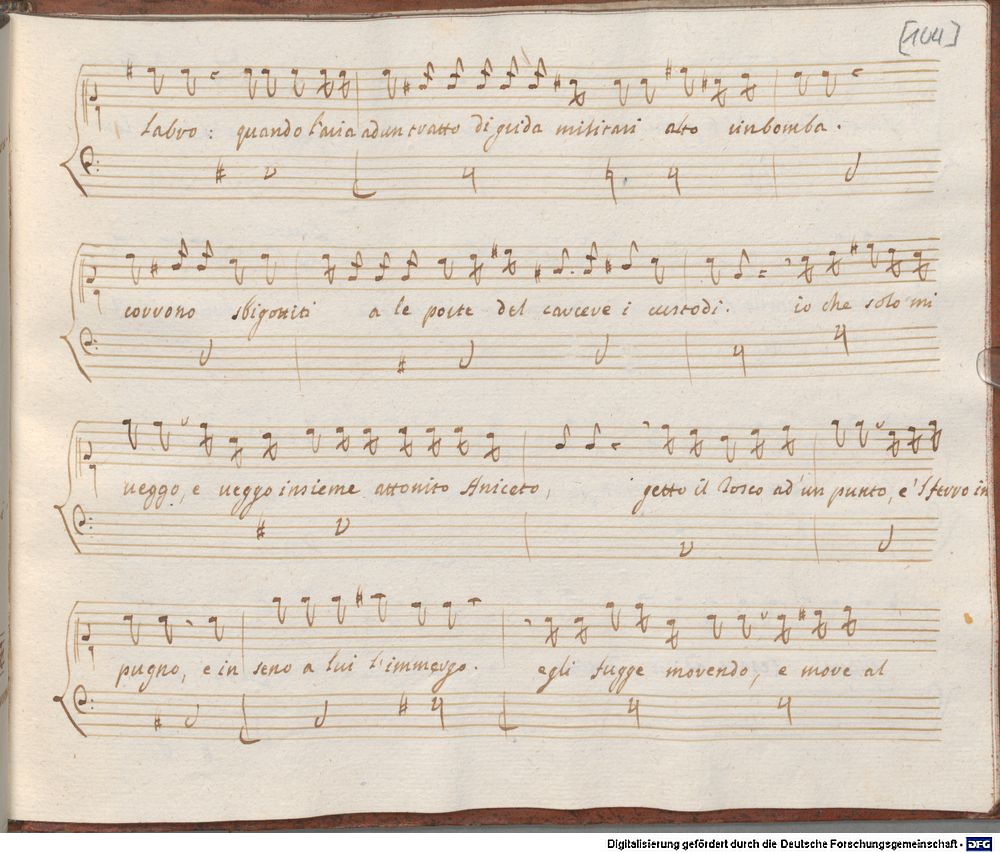 [104]
labro : quando l'aria ad un tratto di grida militari alto rinbomba .
corrono sbigotiti a le porte del carcere i custodi . io che solo mi
ueggo, e ueggo insieme attonito Aniceto, getto il Tosco ad un punto, e'l ferro in
pugno, e in seno a lui l'immergo . egli fugge morendo, e more al
Digitalisierung gefördert durch die Deutsche Forschungsgemeinschaft - DFG